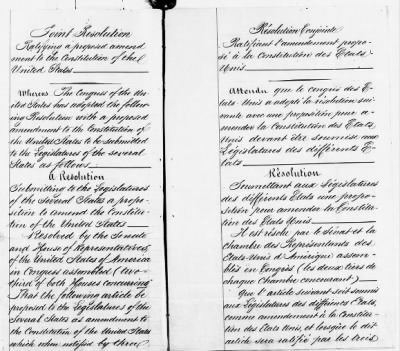 Joint Resolution
Ratifying a proposed amend
ment to the Constitution of the
United States
Whereas The Congress of the Uni
ted States has adopted the follow
ing Resolution with a proposed
amendment to the Constitution of
the United States to be submitted
to the Legislatures of the several
States as follows
A Resolution
Submitting to the Legislatures
of the Several States a propo-
sition to amend the Constitu-
tion of the United States
Resolved by the Senate
and House of Representatives
of the United States of America
in Congress assembled (two
third of both Houses concurring
That the following article be
proposed to the Legislatures of the
Several States as amendment to
the Constitution of the United States
which when ratified by three
Résolution Conjointe
Ratifiant l'amendement propo-
sé à la Constitution des États
Unis
Attendu que le congrès des É-
tats Unis a adopté la résolution sui
vante avec une proposition pour a-
mender la Constitution des États
Unis devant être soumise aux
Législatures des différents É-
tats
Résolution
Soumettant aux Législatures
des différents États une propo-
sition pour amender la Constitu
tion des États Unis
Il est résolu par le Sénat et la
chambre des Représentants des
États-Unis d'Amérique assem-
blés en Congrès (les deux tiers de
chaque Chambre concourant)
Que l'article suivant soit soumis
aux Législatures des différents États,
comme amendement à la Constitu-
tion des États Unis, et lorsque le dit
article sera ratifié par les trois